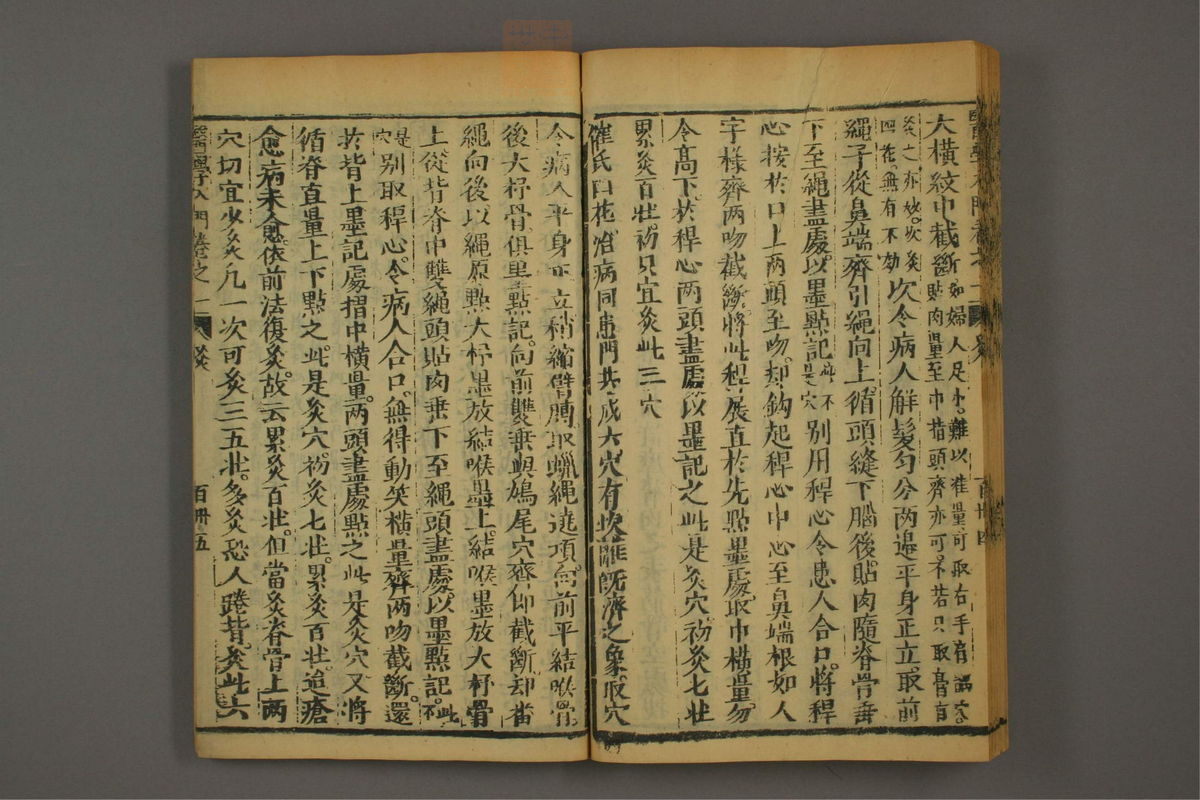 醫學入門卷之一 灸
大橫紋中截斷如婦人足小難以准量可取右手肩髃穴貼肉量至中指頭齊亦可不若只取膏肓
灸之亦妙次灸四花無有不効次令病人解髮勻分兩邊平身正立取前
繩子從鼻端齊引繩向上循頭縫下腦後貼肉隨脊骨垂
下至繩盡處以墨點記此不是穴別用稈心令患人合口將稈
心按於口上兩頭至吻却鈎起稈心中心至鼻端根如人
字樣齊兩吻截斷將此稈展直於先點墨處取中橫量勿
令高下於稈心兩頭盡處以墨記之此是灸穴初灸七壯
累灸百壯初只宜灸此三穴
崔氏四花治病同患門共成六穴有坎離旣濟之象取穴
令病人平身正立稍縮臂膊取蠟繩遶項向前平結喉骨
後大杼骨俱墨點記向前雙垂與鳩尾穴齊仰截斷却畨
繩向後以繩原點大杼墨放結喉墨上結喉墨放大杼骨
上從背脊中雙繩頭貼肉垂下至繩頭盡處以墨點記此不
是穴別取稈心令病人合口無得動笑橫量齊兩吻截斷還
於背上墨記處摺中橫量兩頭盡處點之此是灸穴又將
循脊直量上下點之此是灸穴初灸七壯累灸百壯迨瘡
愈病未愈依前法復灸故云累灸百壯但當灸脊骨上兩
穴切宜少灸凡一次可灸三五壯多灸恐人踡背灸此六
醫學入門卷之一 灸 百卌五